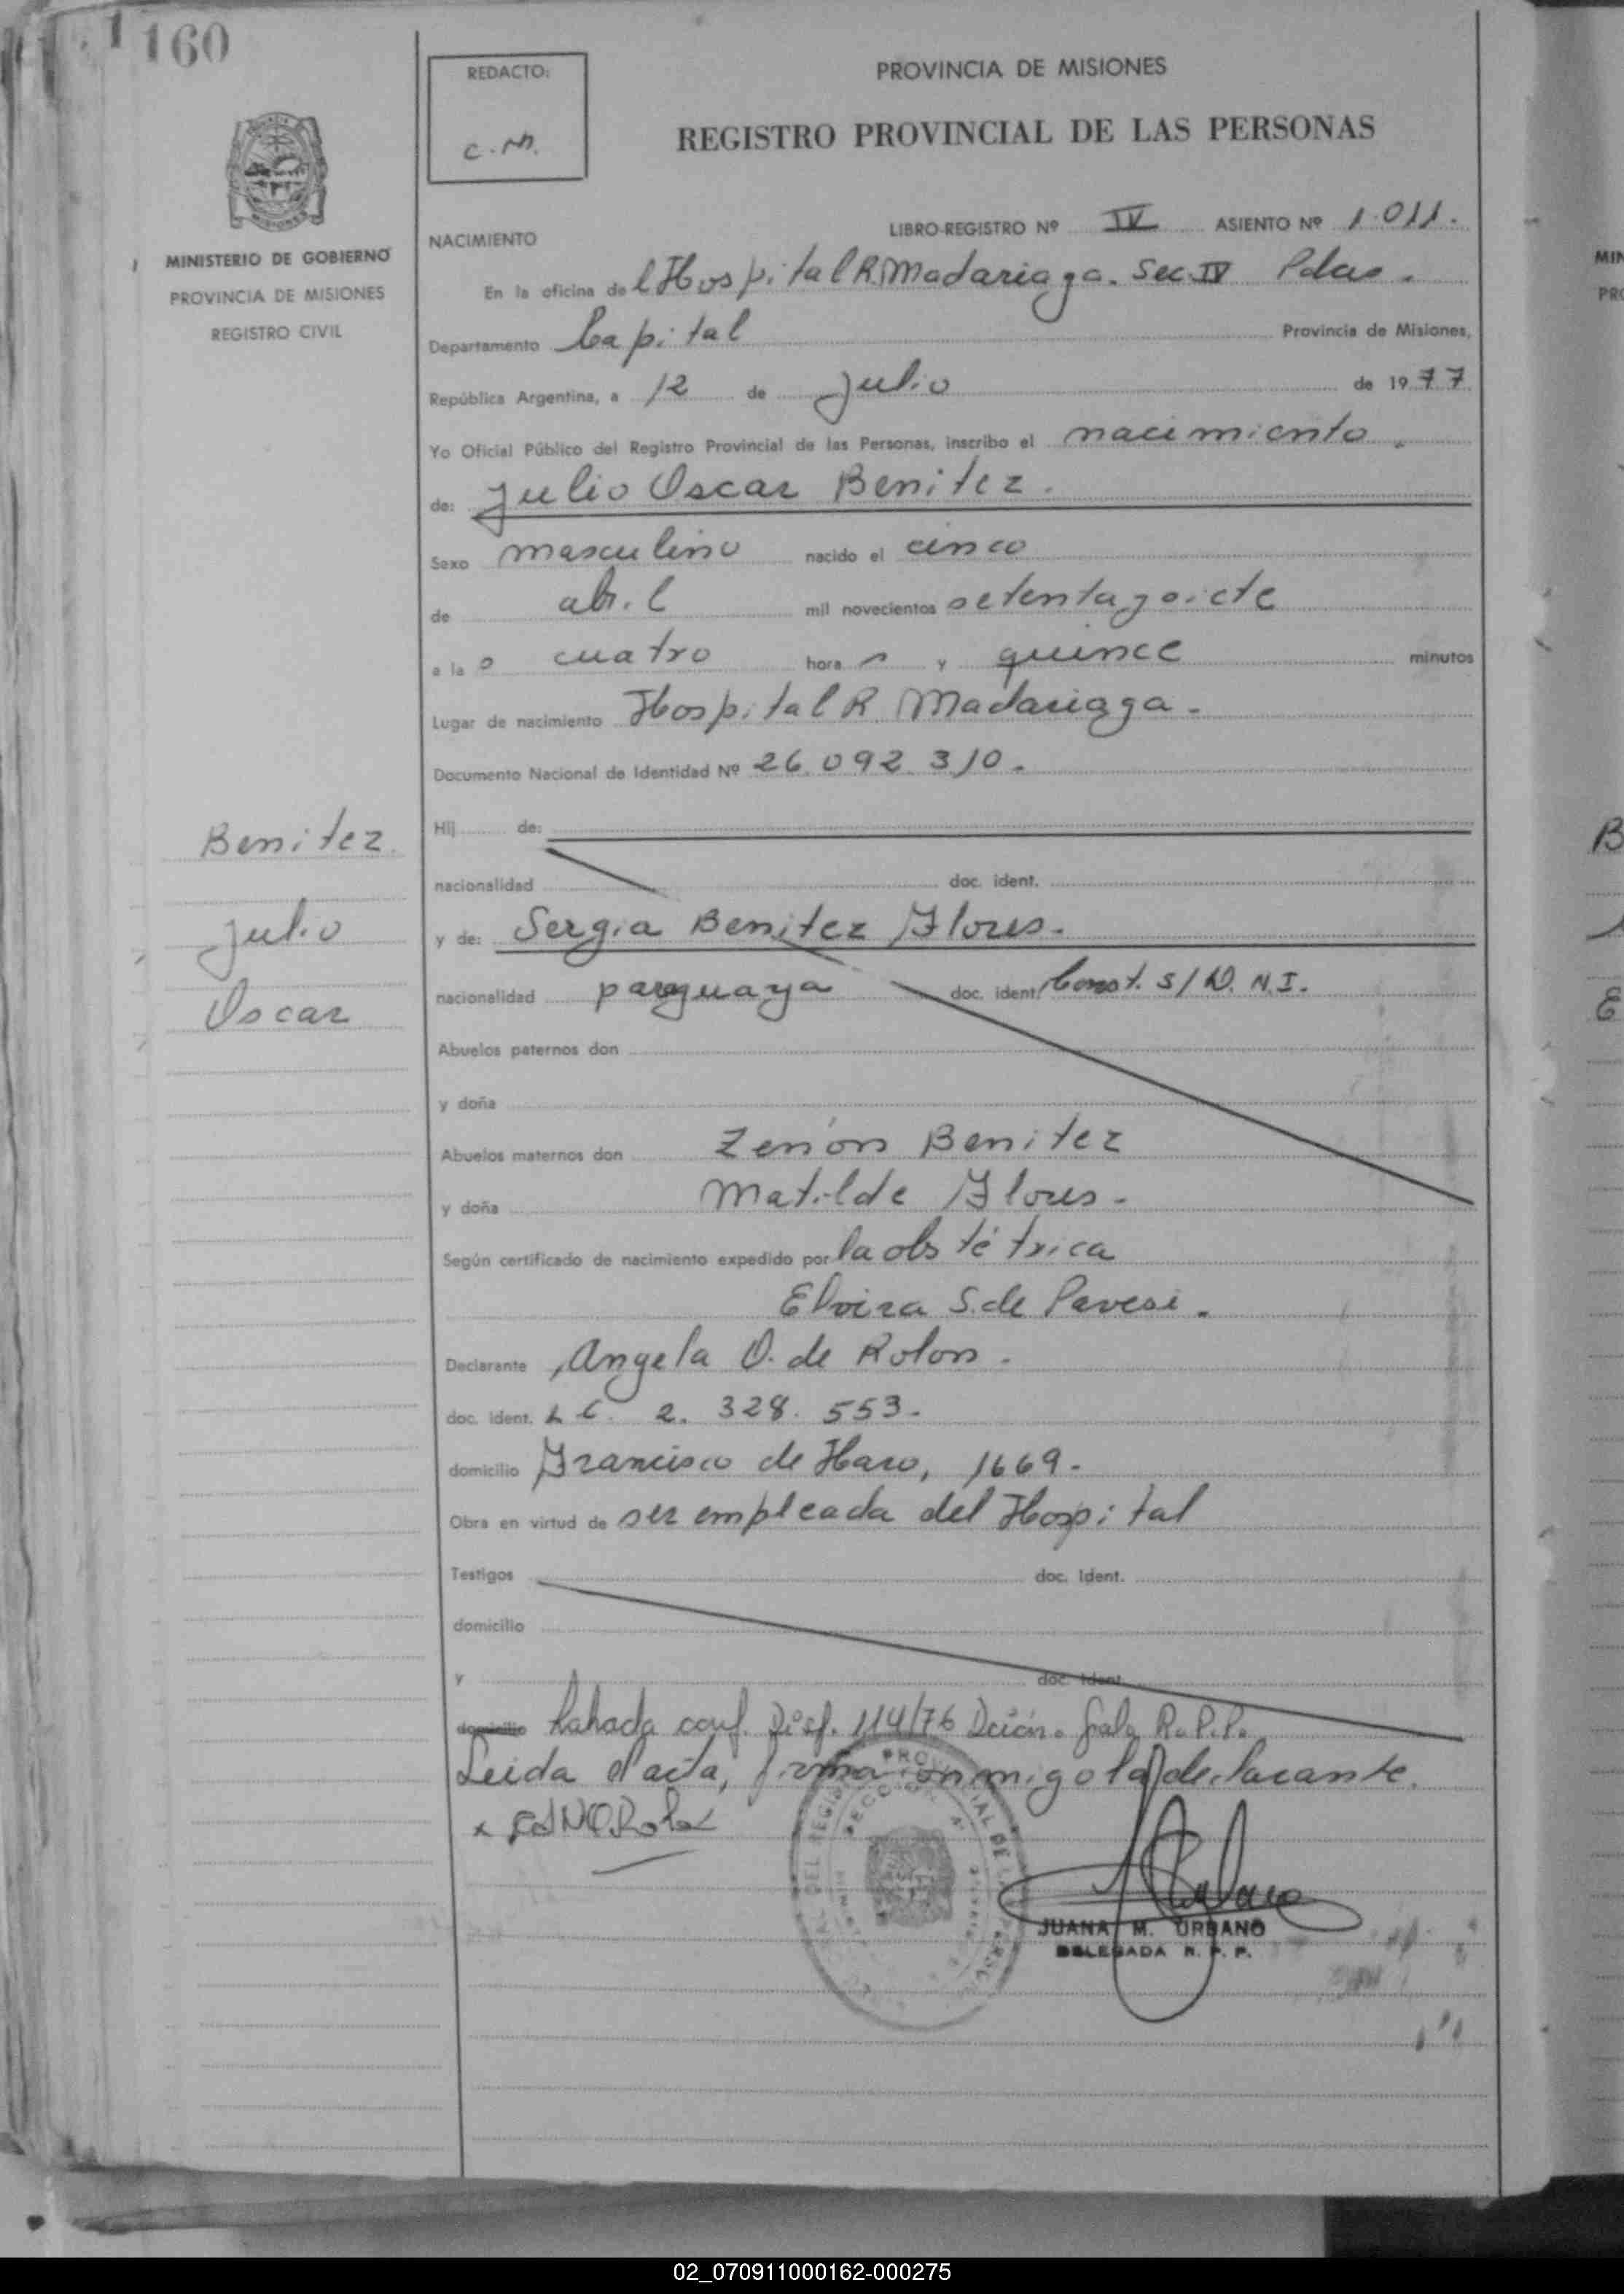 160
REDACTO:
C.M.
PROVINCIA DE MISIONES
REGISTRO PROVINCIAL DE LAS PERSONAS
MINISTERIO DE GOBIERNO
PROVINCIA DE MISIONES
REGISTRO CIVIL
LIBRO-REGISTRO Nº IV ASIENTO Nº 1.011.
NACIMIENTO
En la oficina del Hospital R. Madariaga. Sec IV Pdas.
Departamento Capital Provincia de Misiones,
República Argentina, a 12 de Julio de 1977
Yo Oficial Público del Registro Provincial de las Personas, inscribo el nacimiento.
de: Julio Oscar Benitez.
Sexo masculino nacido el cinco
de abril mil novecientos setentaysiete
a las cuatro horas y quince minutos
Lugar de nacimiento Hospital R Madariaga.
Documento Nacional de Identidad Nº 26.092.310.
Benitez
Julio
Oscar
Hij de:
nacionalidad doc. ident.
y de: Sergia Benitez Flores.
nacionalidad paraguaya doc. ident. Const. S/D.N.I.
Abuelos paternos don
y doña
Abuelos maternos don Zenón Benitez
y doña Matilde Flores.
Según certificado de nacimiento expedido por la obstétrica
Elvira S. de Pavesi.
Declarante Angela O. de Rolon.
doc. ident. L C. 2. 328. 553.
domicilio Francisco de Haro, 1669.
Obra en virtud de ser empleada del Hospital
Testigos doc. Ident.
domicilio
y doc. Ident.
domicilio conf. Disp. 114/76 R.P.P.
Leida el acta, firma conmigo la declarante.
JUANA M. URBANO
DELEGADA R. P. P.
02_070911000162-000275